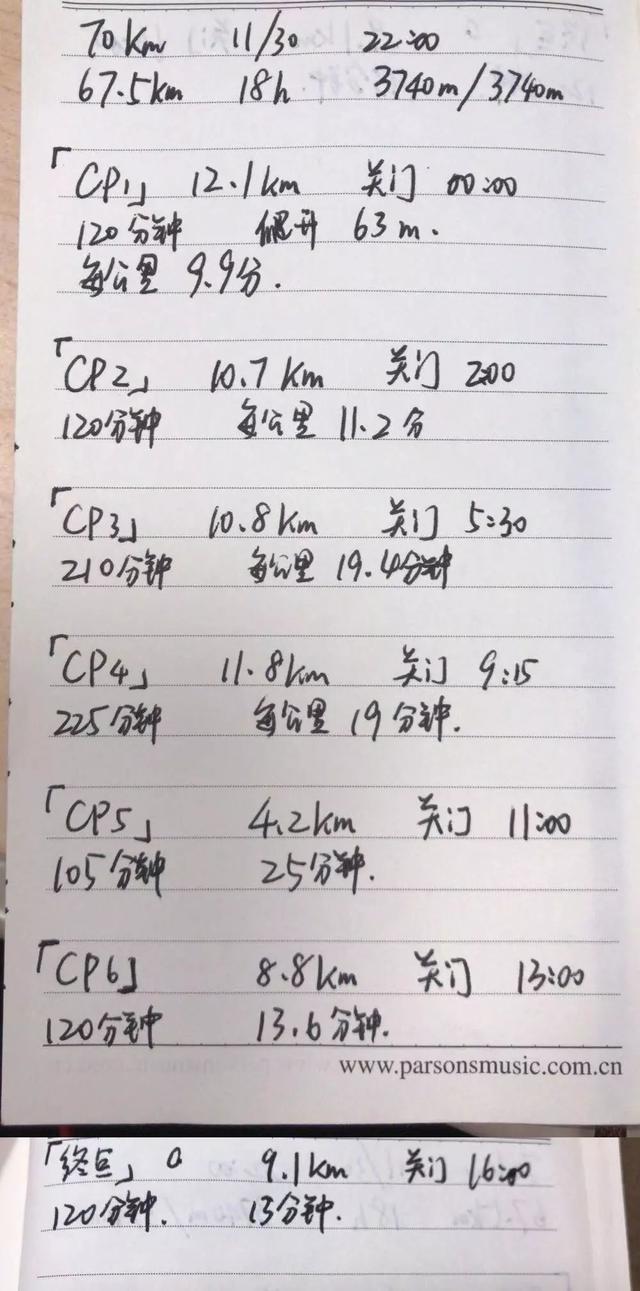 70km 11/30 22:00
67.5km 18h 3740m/3740m
「CP1」 12.1km 关门 00:00
120分钟 爬升 63m.
每公里 9.9分.
「CP2」 10.7km 关门 2:00
120分钟 每公里 11.2分
「CP3」 10.8km 关门 5:30
210分钟 每公里 19.4分钟
「CP4」 11.8km 关门 9:15
225分钟 每公里 19分钟.
「CP5」 4.2km 关门 11:00
105分钟 25分钟.
「CP6」 8.8km 关门 13:00
120分钟 13.6分钟.
www.parsonsmusic.com.cn
「终点」 9.1km 关门 16:00
120分钟. 13分钟.